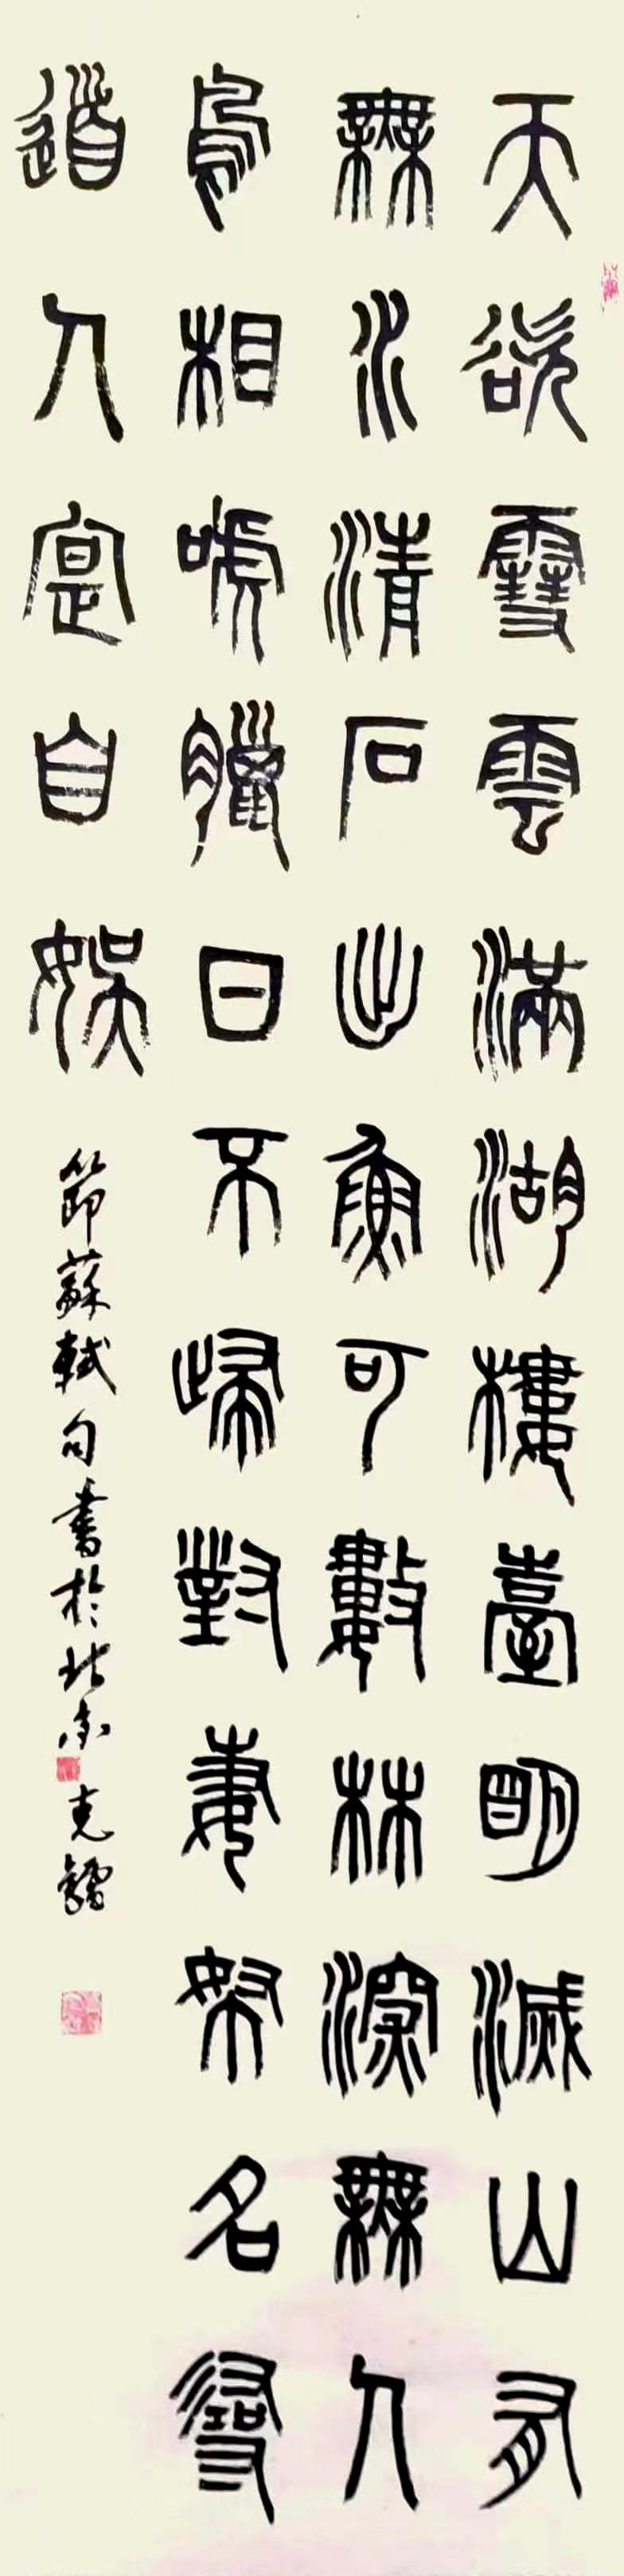 天欲雪雲滿湖樓臺明滅山有
無水清石出魚可數林深無人
鳥相呼臘日不歸對妻孥名尋
道人寔自娛
節蘇軾句書於北京 克